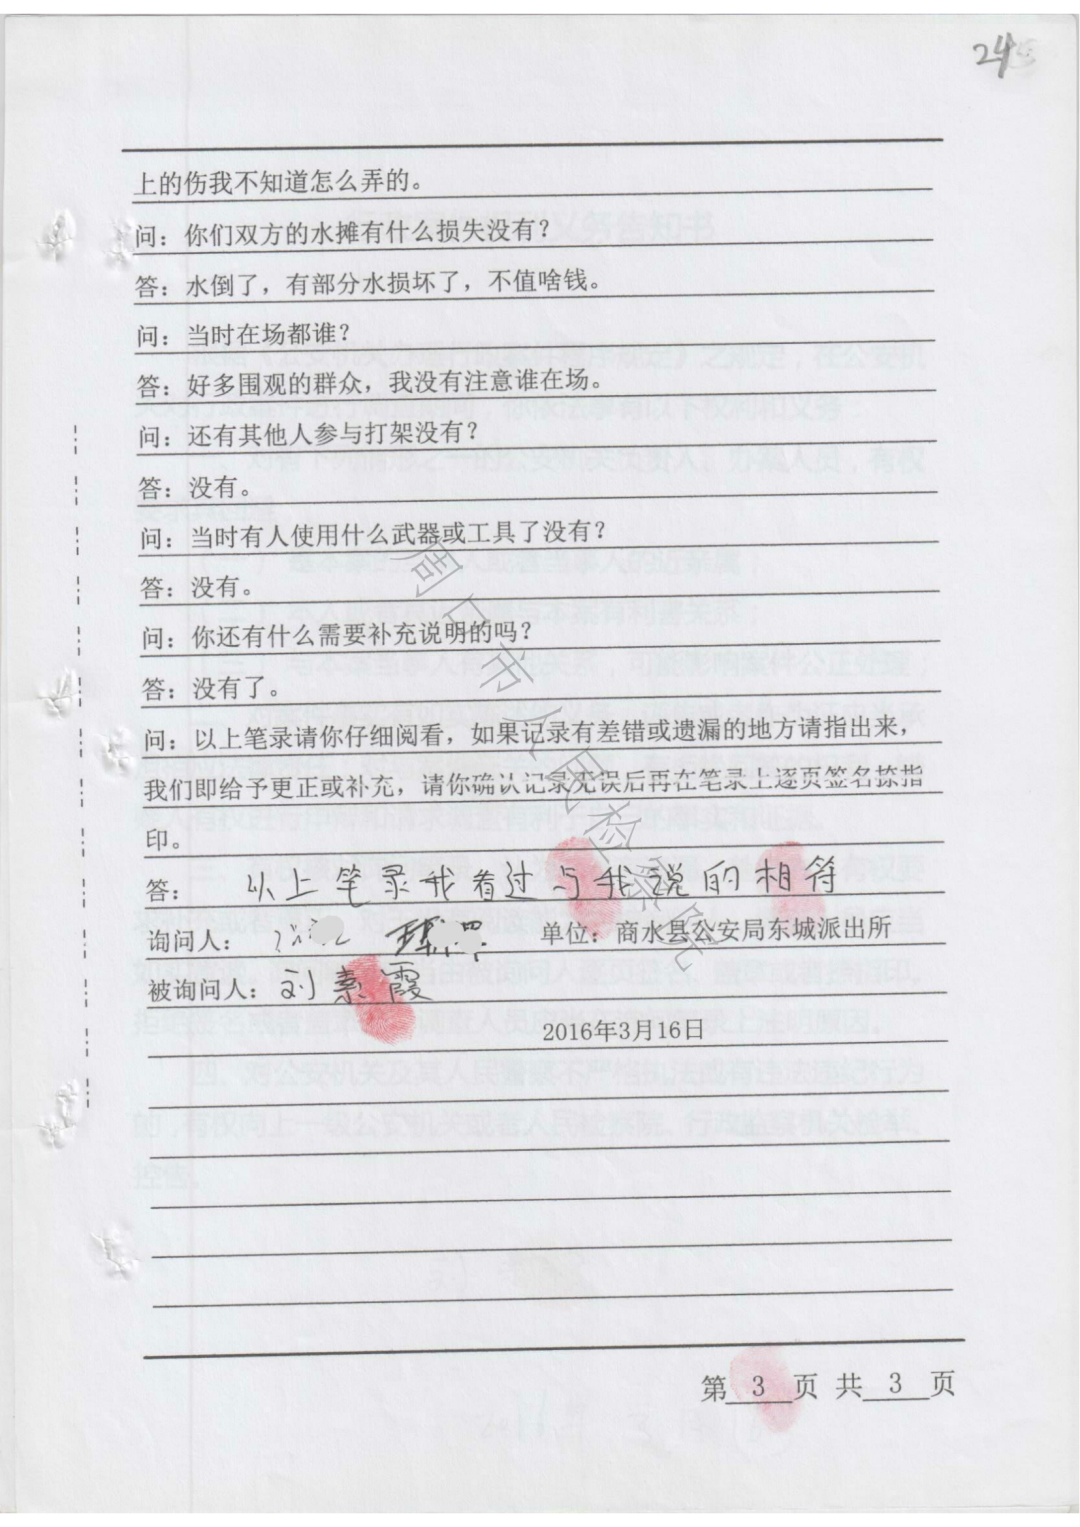 24
上的伤我不知道怎么弄的。
问：你们双方的水摊有什么损失没有？
答：水倒了，有部分水损坏了，不值啥钱。
问：当时在场都谁？
答：好多围观的群众，我没有注意谁在场。
问：还有其他人参与打架没有？
答：没有。
问：当时有人使用什么武器或工具了没有？
答：没有。
问：你还有什么需要补充说明的吗？
答：没有了。
问：以上笔录请你仔细阅看，如果记录有差错或遗漏的地方请指出来，
我们即给予更正或补充，请你确认记录无误后再在笔录上逐页签名捺指
印。
答： 以上笔录我看过与我说的相符
询问人： 单位：商水县公安局东城派出所
被询问人：刘素霞
2016年3月16日
第 3 页 共 3 页
周口市人民检察院